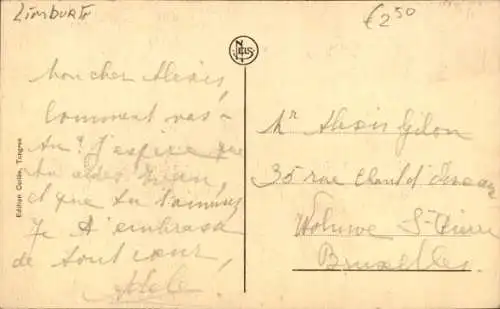 Limburg
€250
NELS
Mon cher Alexis,
Comment vas-
tu? J'espère que
tu aides
et que tu t'amuses
Je t'embrasse
de tout cœur,
Adèle
Edition Collée, Tongres
Mr Alexis Gilon
35 rue Chant d'Oiseau
Woluwe St-Pierre
Bruxelles.